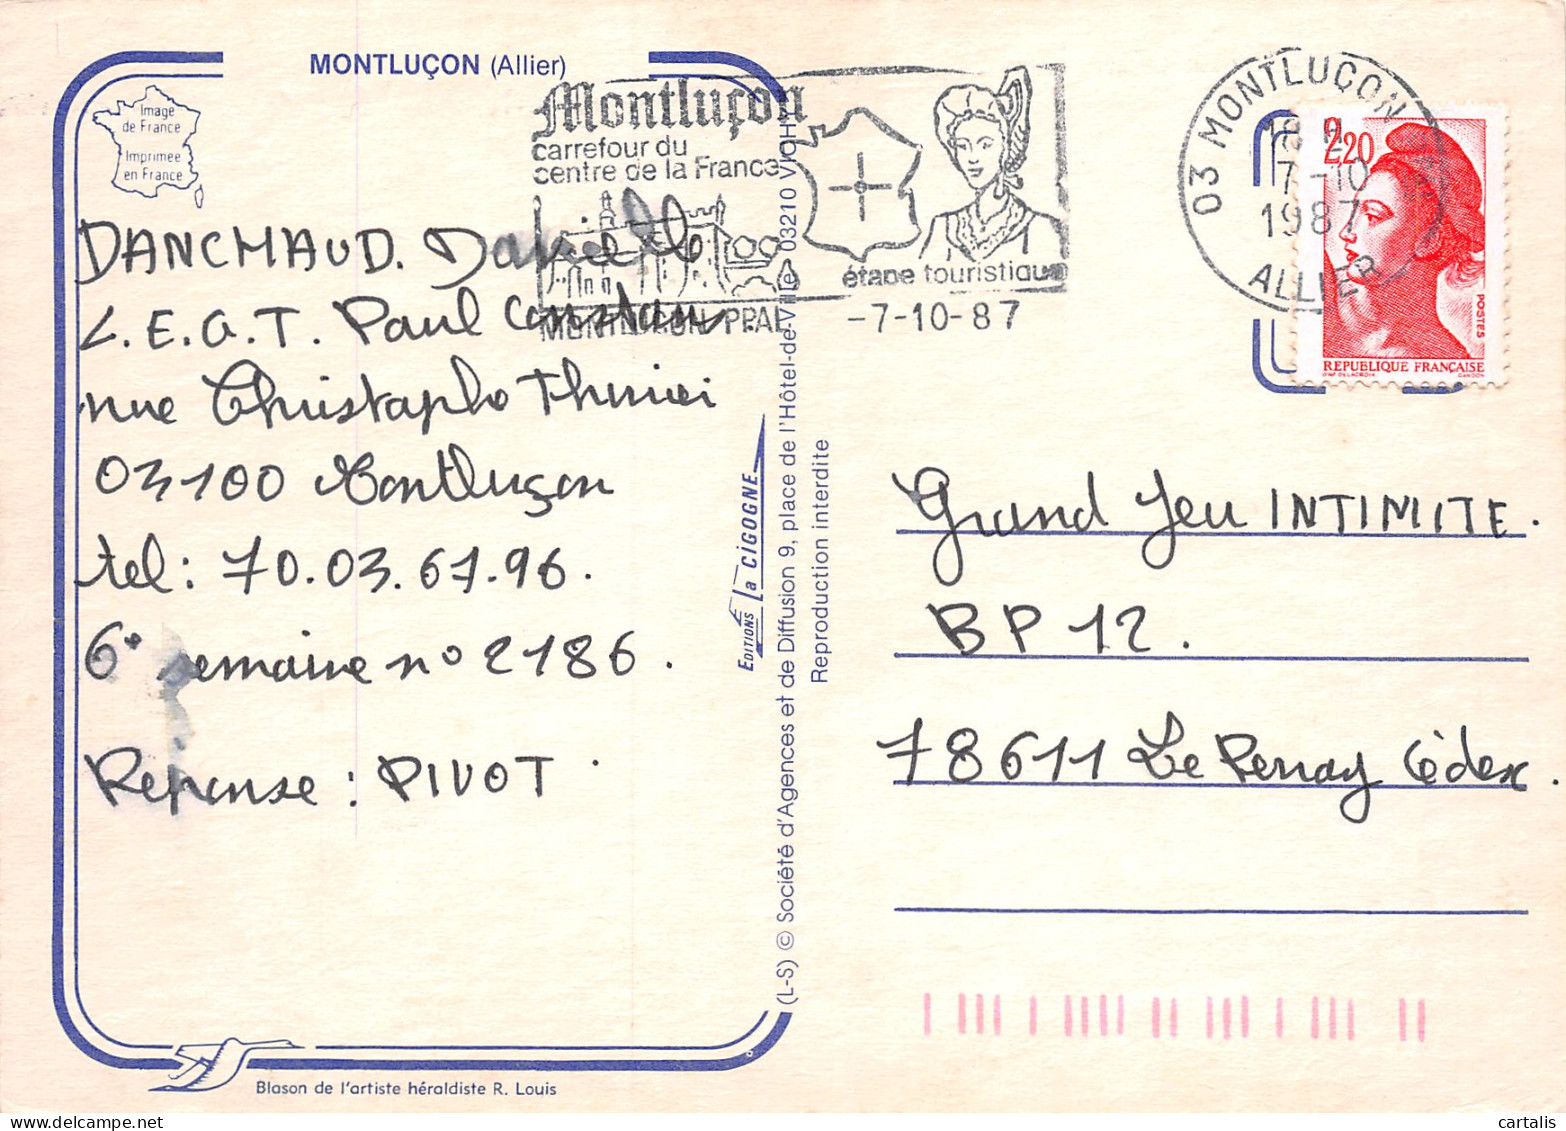 MONTLUÇON (Allier)
Image
de France
Imprimée
en France
Montluçon
carrefour du
centre de la France
étape touristique
MONTLUCON PPAL
-7-10-87
03 MONTLUÇON
18 H
7-10
1987
ALLIER
2,20
POSTES
REPUBLIQUE FRANÇAISE
D'AP. DELACROIX
GANDON
DANCHAUD. Danielle
L.E.G.T. Paul Constans.
rue Christophe Thivrier
03100 Montluçon
tel: 70.03.67.96.
6e semaine no 2186.
Reponse: PIVOT
EDITIONS la CIGOGNE
(L-S) © Société d'Agences et de Diffusion 9, place de l'Hôtel-de-Ville - 03210 VICHY
Reproduction interdite
Grand Jeu INTIMITE.
BP 12.
78611 Le Perray Cédex.
Blason de l'artiste héraldiste R. Louis
cartalis
www.delcampe.net